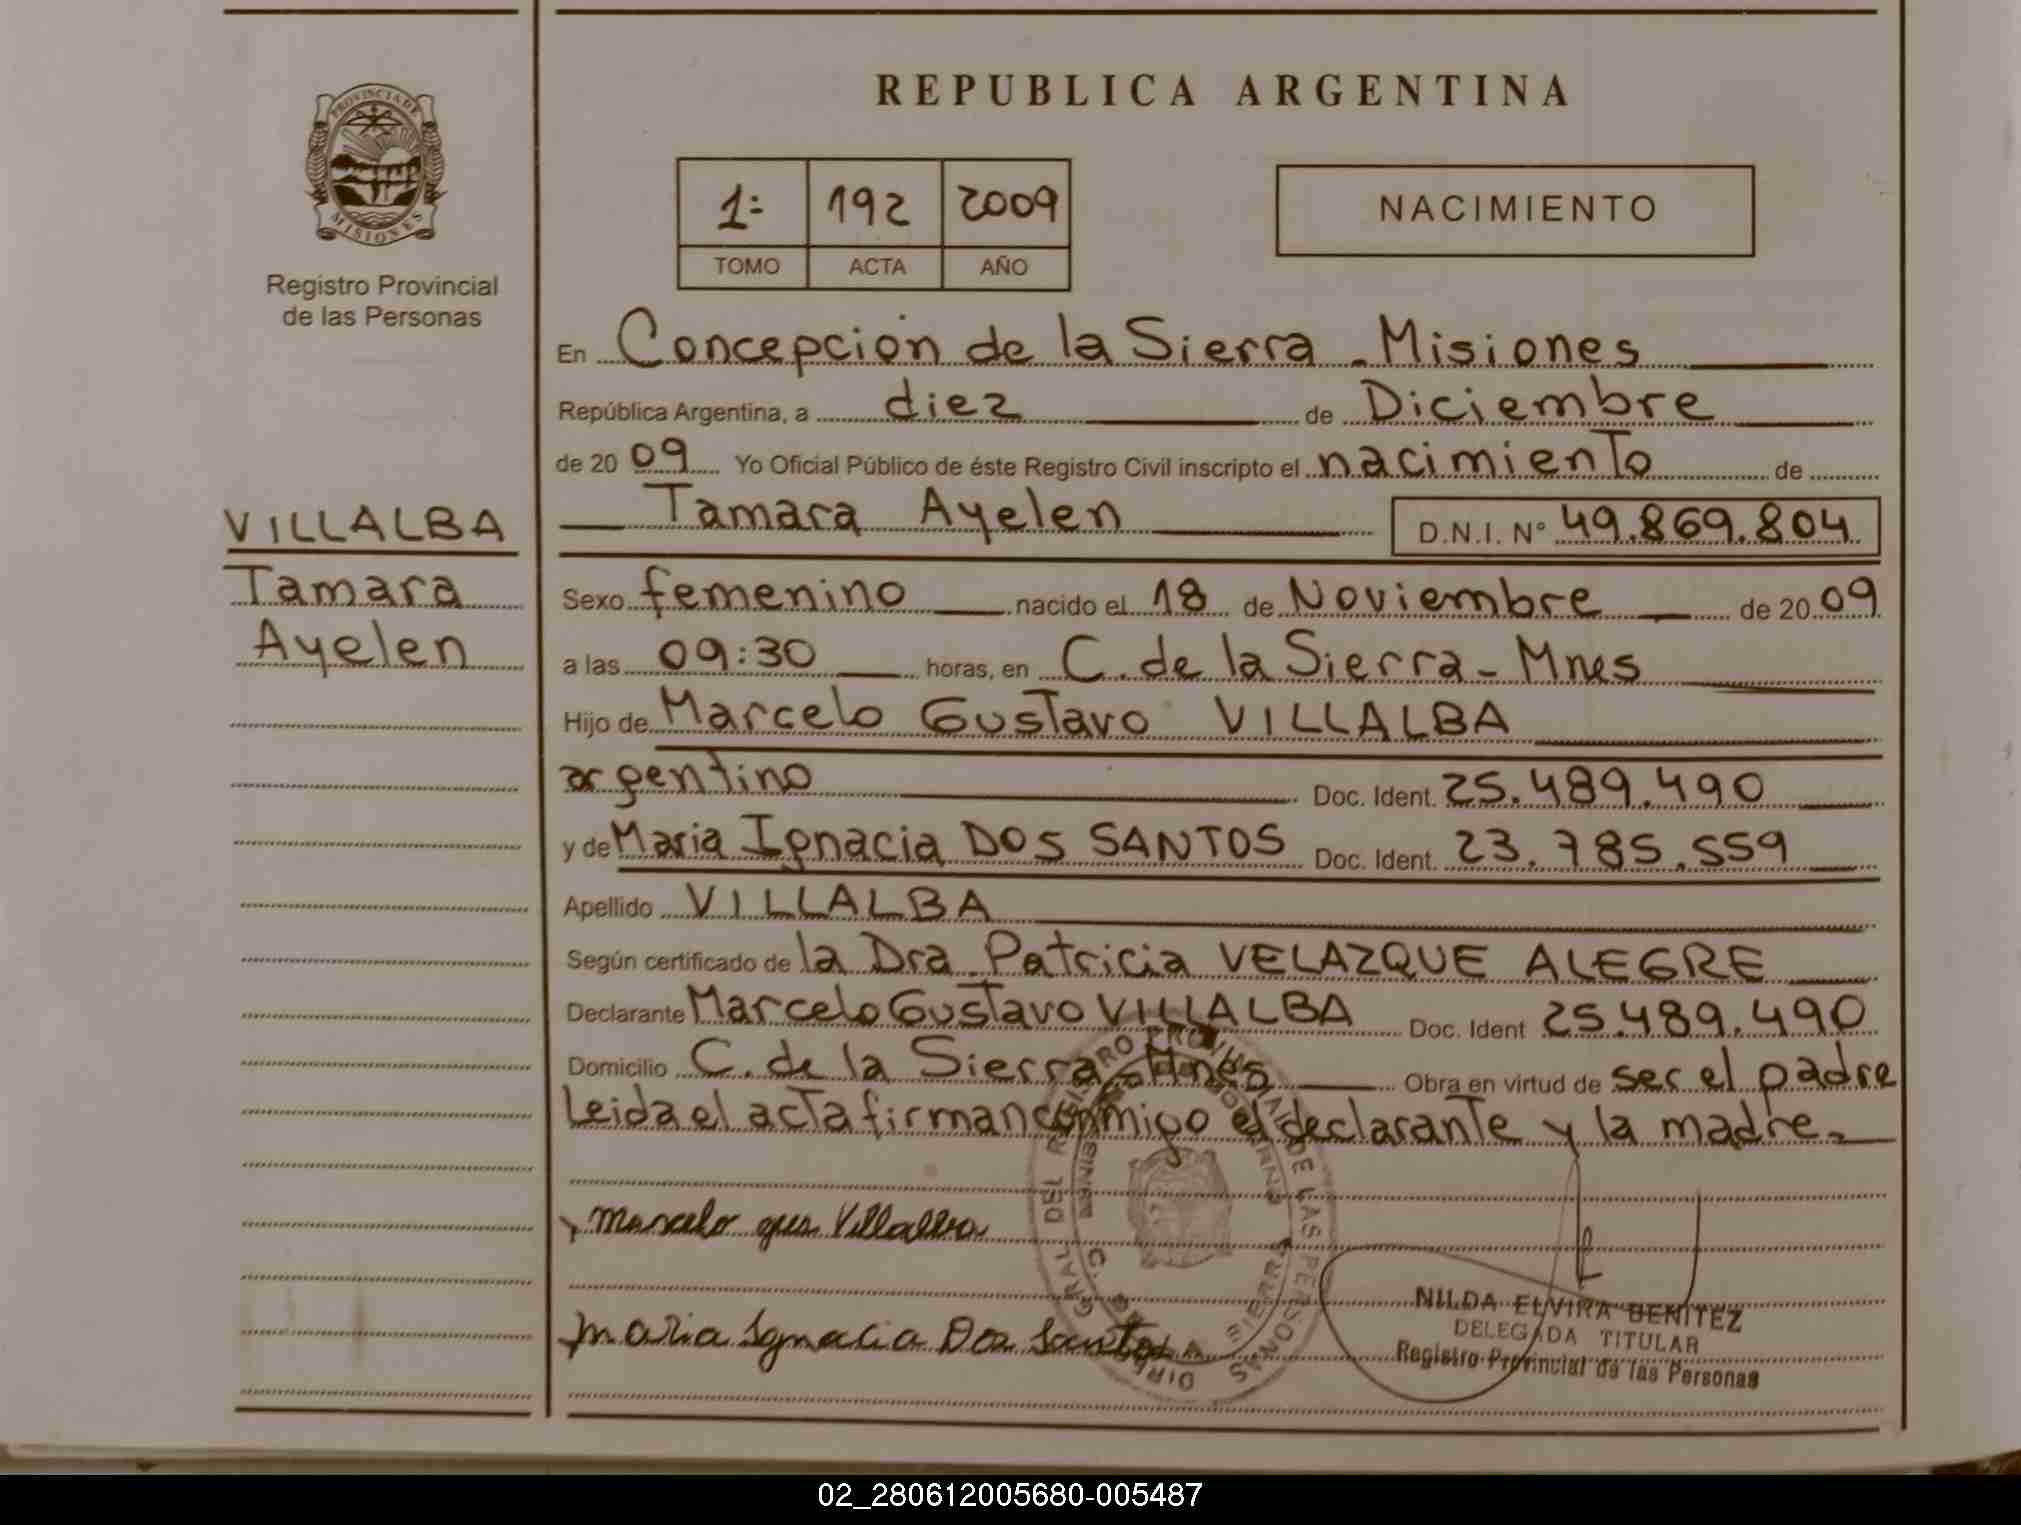 REPUBLICA ARGENTINA
PROVINCIA DE
MISIONES
Registro Provincial
de las Personas
1= 192 2009
TOMO ACTA AÑO
NACIMIENTO
En Concepción de la Sierra - Misiones
República Argentina, a diez de Diciembre
de 20 09 Yo Oficial Público de éste Registro Civil inscripto el nacimiento de
Tamara Ayelen D.N.I. N° 49.869.804
VILLALBA
Tamara
Ayelen
Sexo femenino nacido el 18 de Noviembre de 20 09
a las 09:30 horas, en C. de la Sierra - Mnes
Hijo de Marcelo Gustavo VILLALBA
argentino Doc. Ident. 25.489.490
y de Maria Ignacia DOS SANTOS Doc. Ident. 23.785.559
Apellido VILLALBA
Según certificado de la Dra. Patricia VELAZQUE ALEGRE
Declarante Marcelo Gustavo VILLALBA Doc. Ident 25.489.490
Domicilio C. de la Sierra - Mnes Obra en virtud de ser el padre
Leida el acta firman conmigo el declarante y la madre.
Marcelo gus Villalba
Maria Ignacia Dos Santos
NILDA ELVIRA BENITEZ
DELEGADA TITULAR
Registro Provincial de las Personas
02_280612005680-005487